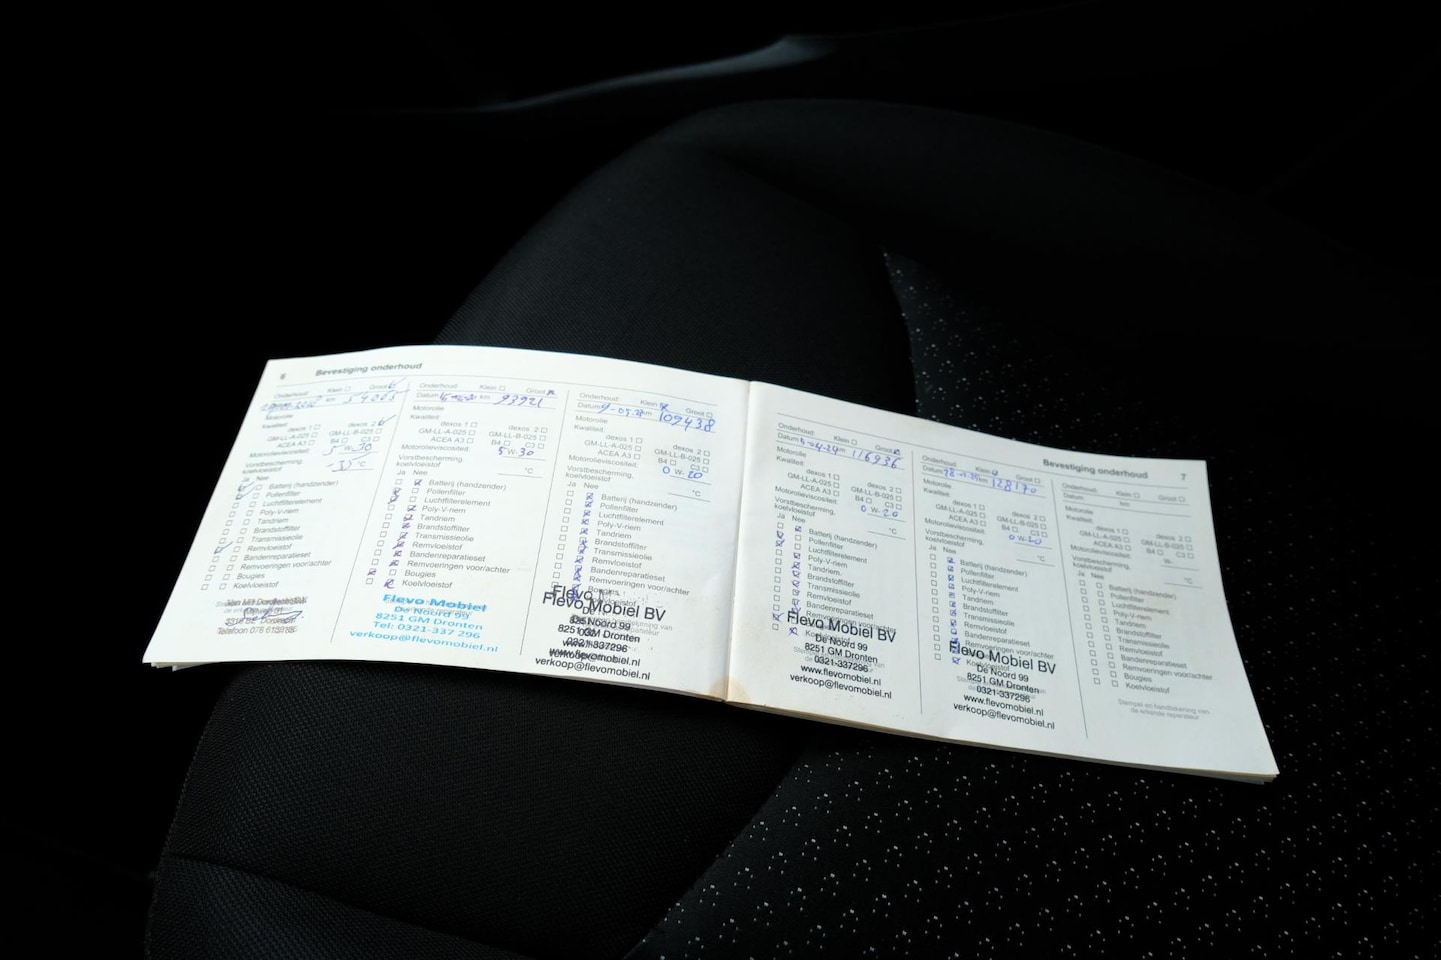 6 Bevestiging onderhoud
Onderhoud: Klein Groot
km
Motorolie
Kwaliteit:
dexos 1 dexos 2
GM-LL-A-025 GM-LL-B-025
ACEA A3 B4 C3
Motorolieviscositeit: 5 W-30
Vorstbescherming,
koelvloeistof °C
Ja Nee
Batterij (handzender)
Pollenfilter
Luchtfilterelement
Poly-V-riem
Tandriem
Brandstoffilter
Transmissieolie
Remvloeistof
Bandenreparatieset
Remvoeringen voor/achter
Bougies
Koelvloeistof
Onderhoud: Klein Groot
Datum km 93921
Motorolie
Kwaliteit:
dexos 1 dexos 2
GM-LL-A-025 GM-LL-B-025
ACEA A3 B4 C3
Motorolieviscositeit: 5 W-30
Vorstbescherming,
koelvloeistof °C
Ja Nee
Batterij (handzender)
Pollenfilter
Luchtfilterelement
Poly-V-riem
Tandriem
Brandstoffilter
Transmissieolie
Remvloeistof
Bandenreparatieset
Remvoeringen voor/achter
Bougies
Koelvloeistof
Flevo Mobiel
De Noord 99
8251 GM Dronten
Tel: 0321-337 296
verkoop@flevomobiel.nl
Onderhoud: Klein Groot
Datum km 109438
Motorolie
Kwaliteit:
dexos 1 dexos 2
GM-LL-A-025 GM-LL-B-025
ACEA A3 B4 C3
Motorolieviscositeit: 0 W-20
Vorstbescherming,
koelvloeistof °C
Ja Nee
Batterij (handzender)
Pollenfilter
Luchtfilterelement
Poly-V-riem
Tandriem
Brandstoffilter
Transmissieolie
Remvloeistof
Bandenreparatieset
Remvoeringen voor/achter
Flevo Mobiel BV
De Noord 99
8251 GM Dronten
0321-337296
www.flevomobiel.nl
verkoop@flevomobiel.nl
Bevestiging onderhoud 7
Onderhoud: Klein Groot
Datum 116936
Motorolie
Kwaliteit:
dexos 1 dexos 2
GM-LL-A-025 GM-LL-B-025
ACEA A3 B4 C3
Motorolieviscositeit: 0 W-20
Vorstbescherming,
koelvloeistof °C
Ja Nee
Batterij (handzender)
Pollenfilter
Luchtfilterelement
Poly-V-riem
Tandriem
Brandstoffilter
Transmissieolie
Remvloeistof
Bandenreparatieset
Remvoeringen voor/achter
Koelvloeistof
Flevo Mobiel BV
De Noord 99
8251 GM Dronten
0321-337296
www.flevomobiel.nl
verkoop@flevomobiel.nl
Onderhoud: Klein Groot
Datum 128170
Motorolie
Kwaliteit:
dexos 1 dexos 2
GM-LL-A-025 GM-LL-B-025
ACEA A3 B4 C3
Motorolieviscositeit: 0 W-20
Vorstbescherming,
koelvloeistof °C
Ja Nee
Batterij (handzender)
Pollenfilter
Luchtfilterelement
Poly-V-riem
Tandriem
Brandstoffilter
Transmissieolie
Remvloeistof
Bandenreparatieset
Remvoeringen voor/achter
Koelvloeistof
Flevo Mobiel BV
De Noord 99
8251 GM Dronten
0321-337296
www.flevomobiel.nl
verkoop@flevomobiel.nl
Onderhoud: Klein Groot
Datum km
Motorolie
Kwaliteit:
dexos 1 dexos 2
GM-LL-A-025 GM-LL-B-025
ACEA A3 B4 C3
Motorolieviscositeit: W-
Vorstbescherming,
koelvloeistof °C
Ja Nee
Batterij (handzender)
Pollenfilter
Luchtfilterelement
Poly-V-riem
Tandriem
Brandstoffilter
Transmissieolie
Remvloeistof
Bandenreparatieset
Remvoeringen voor/achter
Bougies
Koelvloeistof
Stempel en handtekening van
de erkende reparateur